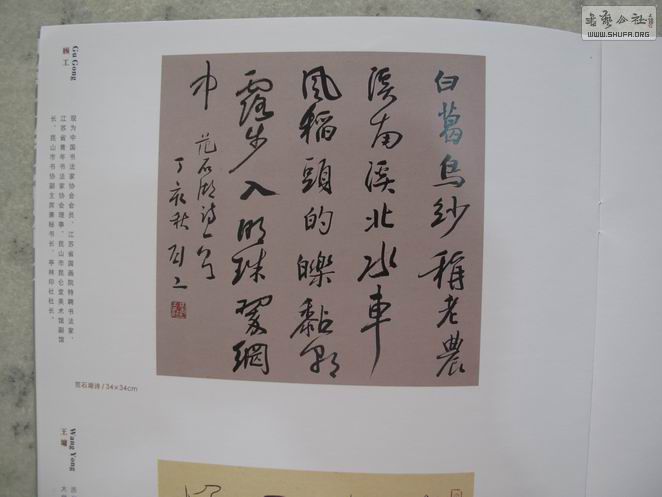 白葛乌纱称老農
溪南溪北水車
風稻頭的皪黏朝
露步入明珠翠網
中
范石湖诗一首
丁亥秋
范石湖诗/34×34cm
Gu Gong
顾工
现为中国书法家协会会员、江苏省国画院特聘书法家、
江苏省青年书法家协会理事、昆山市昆仑堂美术馆副馆
长、昆山市书协副主席兼秘书长、亭林印社社长。
Wang Yong
王墉
WWW.SHUFA.ORG